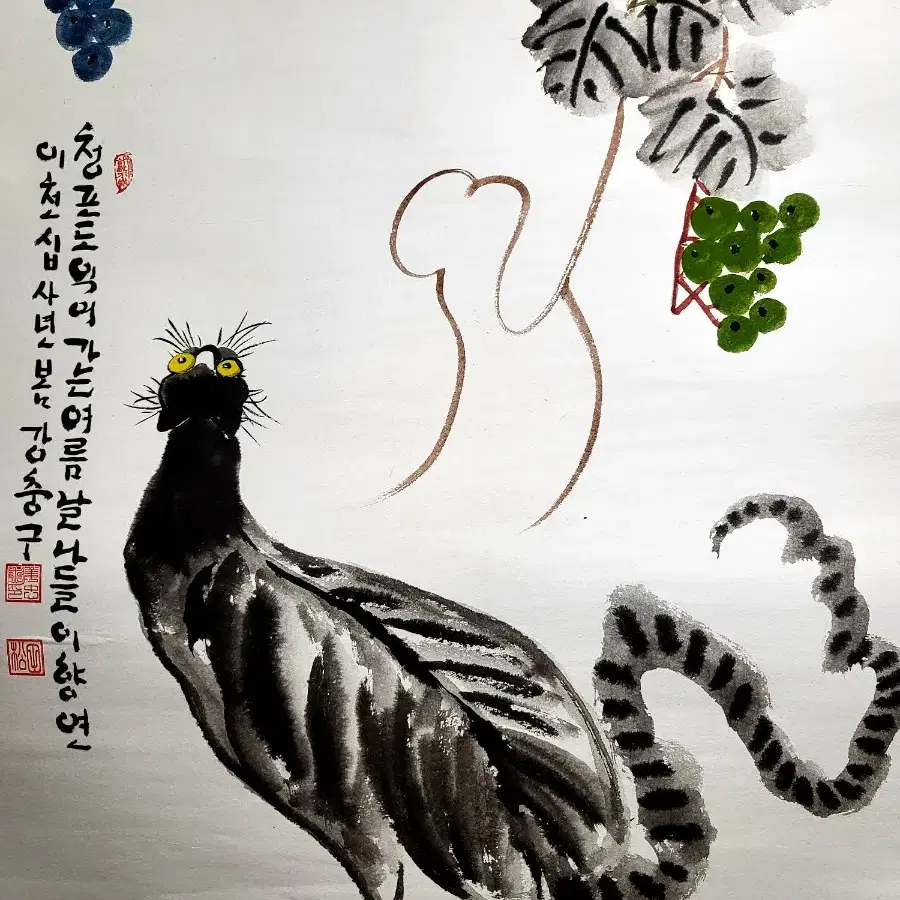 청포도익어가는여름날나들이향연
이천십사년봄 강충구